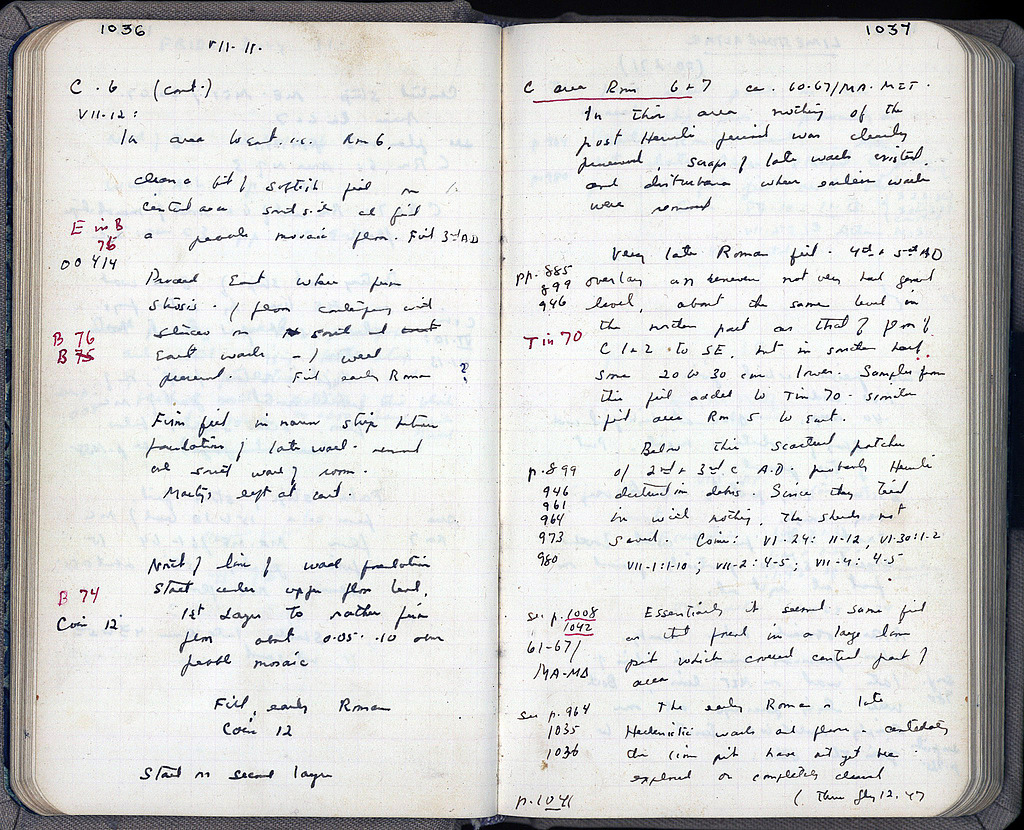 1036
VII-11.
C · 6 (cont.)
VII-12:
In area West, i.e. Rm 6,
clean a bit of softish fill in
central area south side and find
E in B
76
a pebble mosaic floor. Fill 3rd AD
OO 414
Proceed East where firm
of floor contemporary with
B 76
B 75
East walls - of well
preserved. Fill early Roman ?
Firm fill in narrow strip between
foundation of late wall removed
and south wall of room.
Mostly left at east.
North of line of wall foundation
B 74
Start center upper floor level,
Coin 12
1st layer to rather firm
floor about 0.05-.10 over
pebble mosaic
Fill, early Roman
Coin 12
Start on second layer
1037
C area Rms 6+7 ca. 60-67/MA-MET.
In this area nothing of the
post Heruli period was clearly
preserved, scraps of late walls existed,
and disturbance where earlier walls
were removed
Very late Roman fill - 4th + 5th AD
pp. 885
899
946
overlay an uneven not very hard general
level, about the same level in
T in 70
the northern part as that of floor of
C 1+2 to SE, but in southern half
some 20 to 30 cm lower. Samples from
this fill added to T in 70 - similar
fill area Rm 5 to East.
Below this scattered patches
p. 899
of 2nd + 3rd c A.D. probably Heruli
946
961
destruction debris. Since they tied
964
in with nothing, the sherds not
973
saved. Coins: VI-24: 11-12, VI-30:1-2
980
VII-1:1-10; VII-2: 4-5; VII-4: 4-5
see p. 1008
1042
Essentially it seemed same fill
61-67/
MA-MD
as that found in a large lime
pit which covered central part of
area
see p. 964
The early Roman or late
1035
Hellenistic walls and floors - contained by
1036
the lime pit have not yet been
explored or completely cleared
p. 1041
(Thru July 12, 47